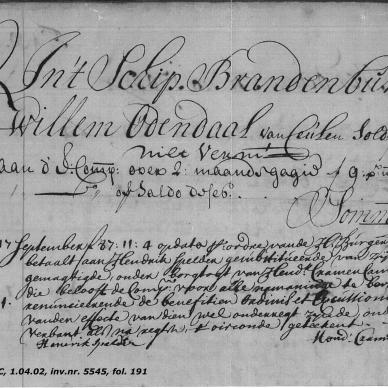 In't Schip Brandenbur
Willem Odendaal van Ceulen Sold
niet Vermt
aan d'E: Comp: over 2: maanden gagie f 9. p.
of Saldo deses.
Somma
17 September f 87: 11: 4 op dato p ordre van de
betaalt aan Hendrik Spelder gesubstitueerde van
gemagtigde, onder borgtogt van Hend: Cramer
die beloofd de Comp voor alle namaninge te
1. renuncieerende de benefitien ordinis et
van den effecte van dien wel onderregt zijnde,
verband als na regten, t'oirconde geteekent.
Henrik Spelder Hend: Cram
C, 1.04.02, inv.nr. 5545, fol. 191